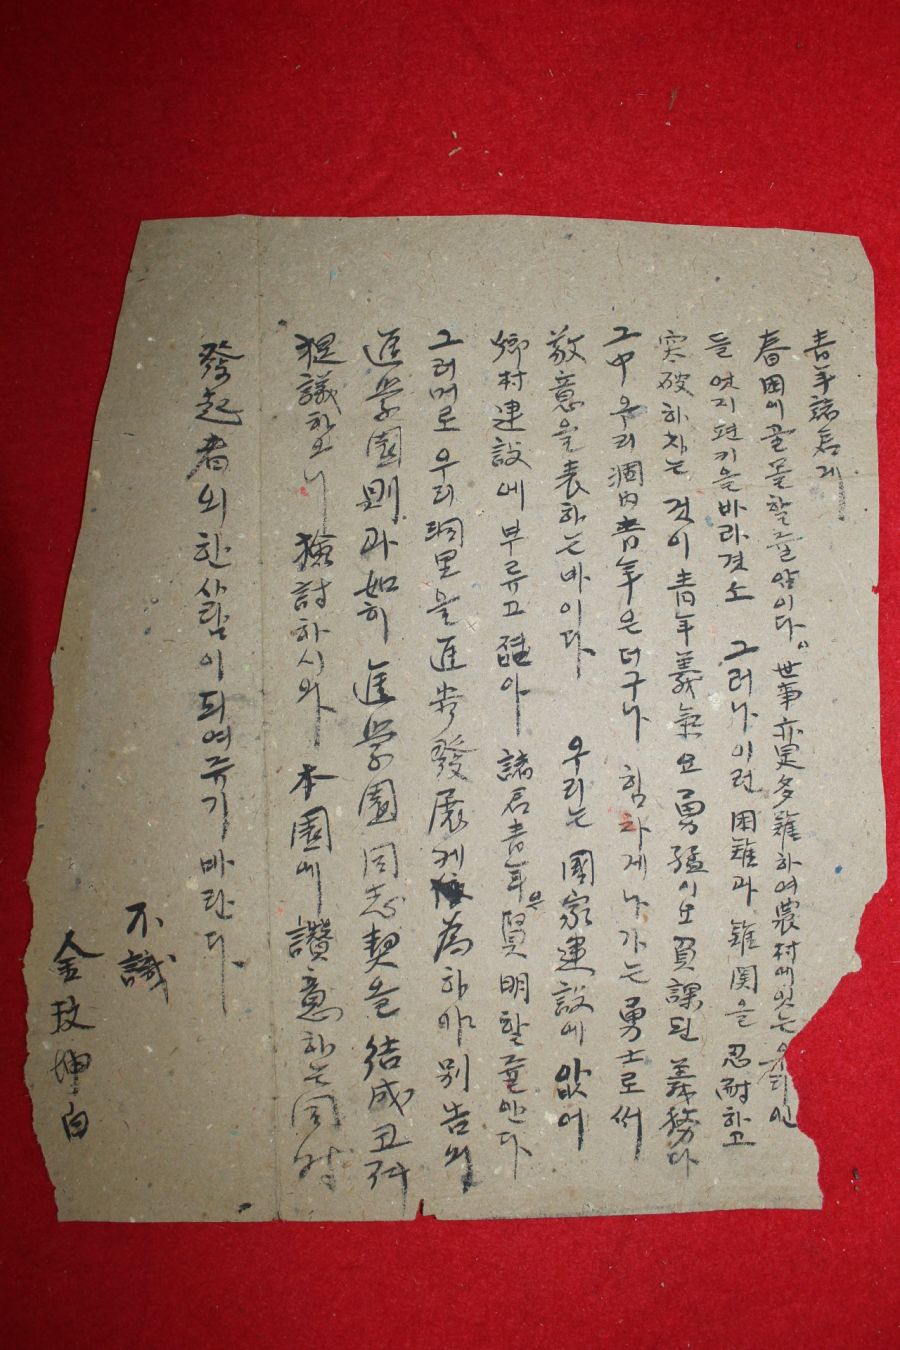 靑年諸君게
春困에골몰할줄암이다。世事亦是多難하여農村에잇는
들 엇지편키을바라겟소 그러나이런困難과難関을忍耐하고
突破하자는것이靑年義氣요勇猛이오負課된義務다
그中우리洞內靑年은더구나 힘차게나가는勇士로써
敬意을表하는바이다 우리는國家建設에앖어
鄕村建設에부르고졂아 諸君靑年은賢明할줄안다
그러머로우리洞里을進步發展케 爲하야別告의
進學園則과如히進學園同志契을結成코저
提議하오니檢討하시와本園에讚意하는同時
發起者의한사람이되여주기바란다
不識
金玟坤白